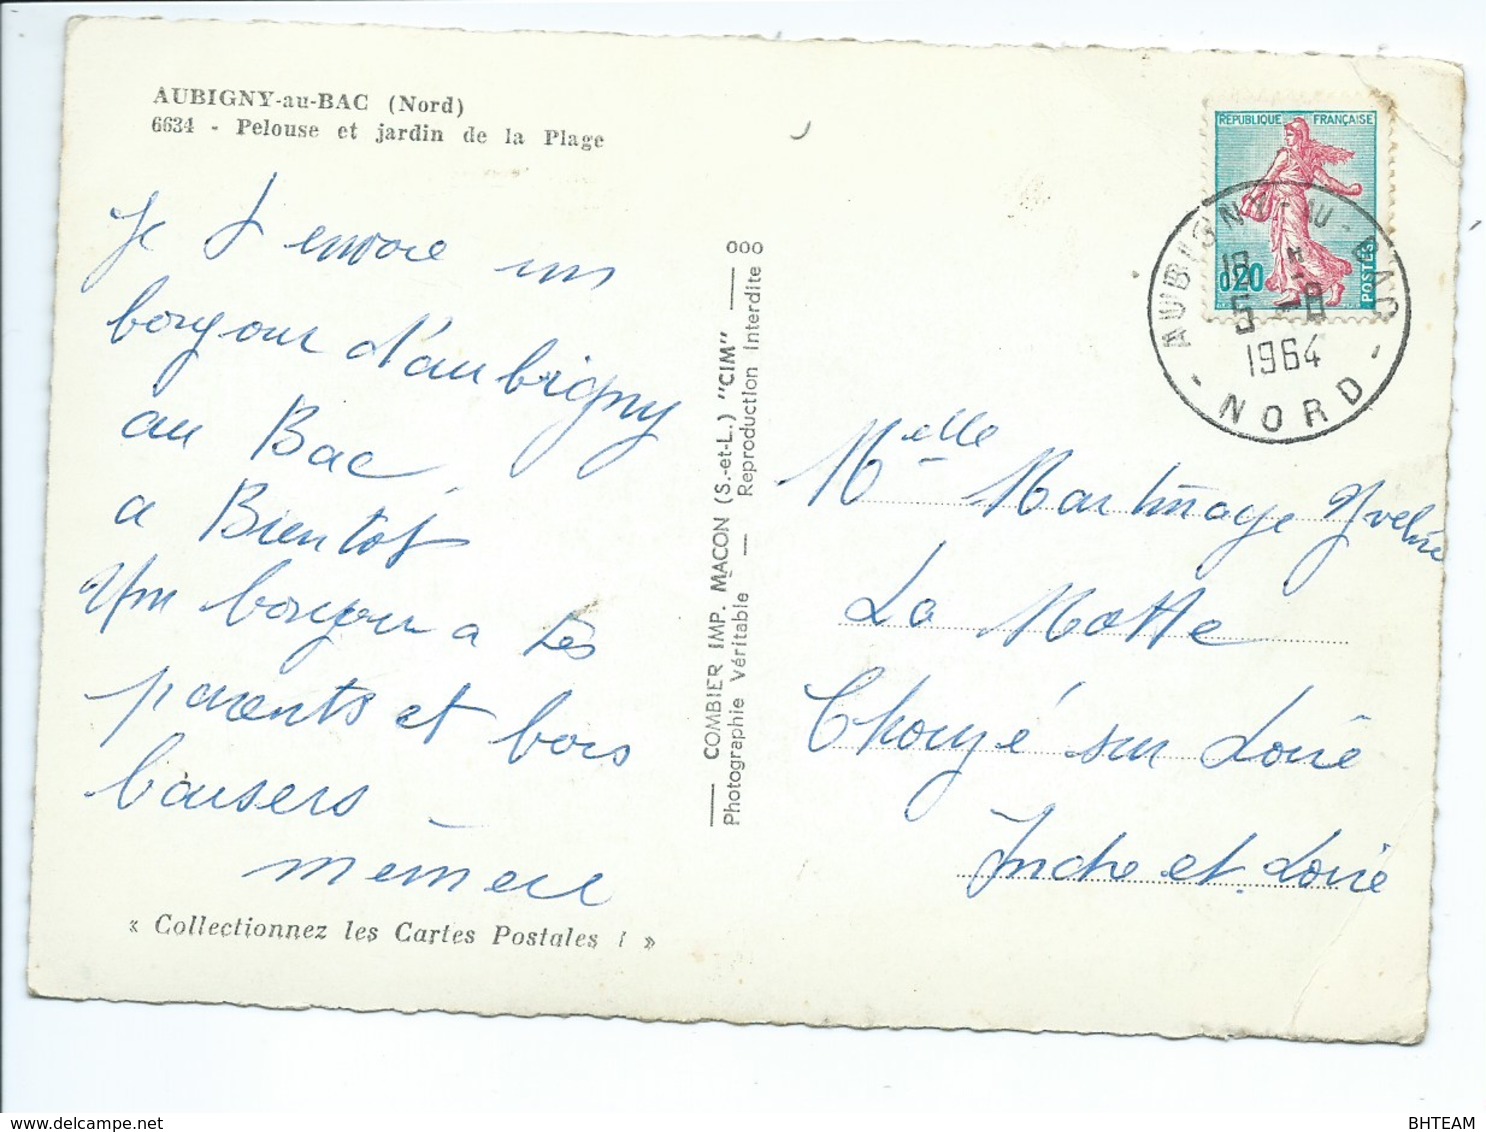 AUBIGNY-au-BAC (Nord)
6634 - Pelouse et jardin de la Plage
Je t envoie un
bonjour d'aubigny
au Bac
a Bientôt
Un bonjour a tes
parents et bons
baisers
mémere
« Collectionnez les Cartes Postales ! »
COMBIER IMP. MACON (S.-et-L.) "CIM"
Photographie Véritable — Reproduction Interdite
REPUBLIQUE FRANÇAISE
0,20
POSTES
AUBIGNY-AU-BAC
18 H
5 -8
1964
- NORD -
Melle Martinage Yveline
La Motte
Chouzé sur Loire
Indre et Loire
BHTEAM